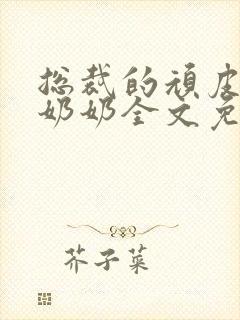 总裁的顽皮
奶奶全文免
芥子菜